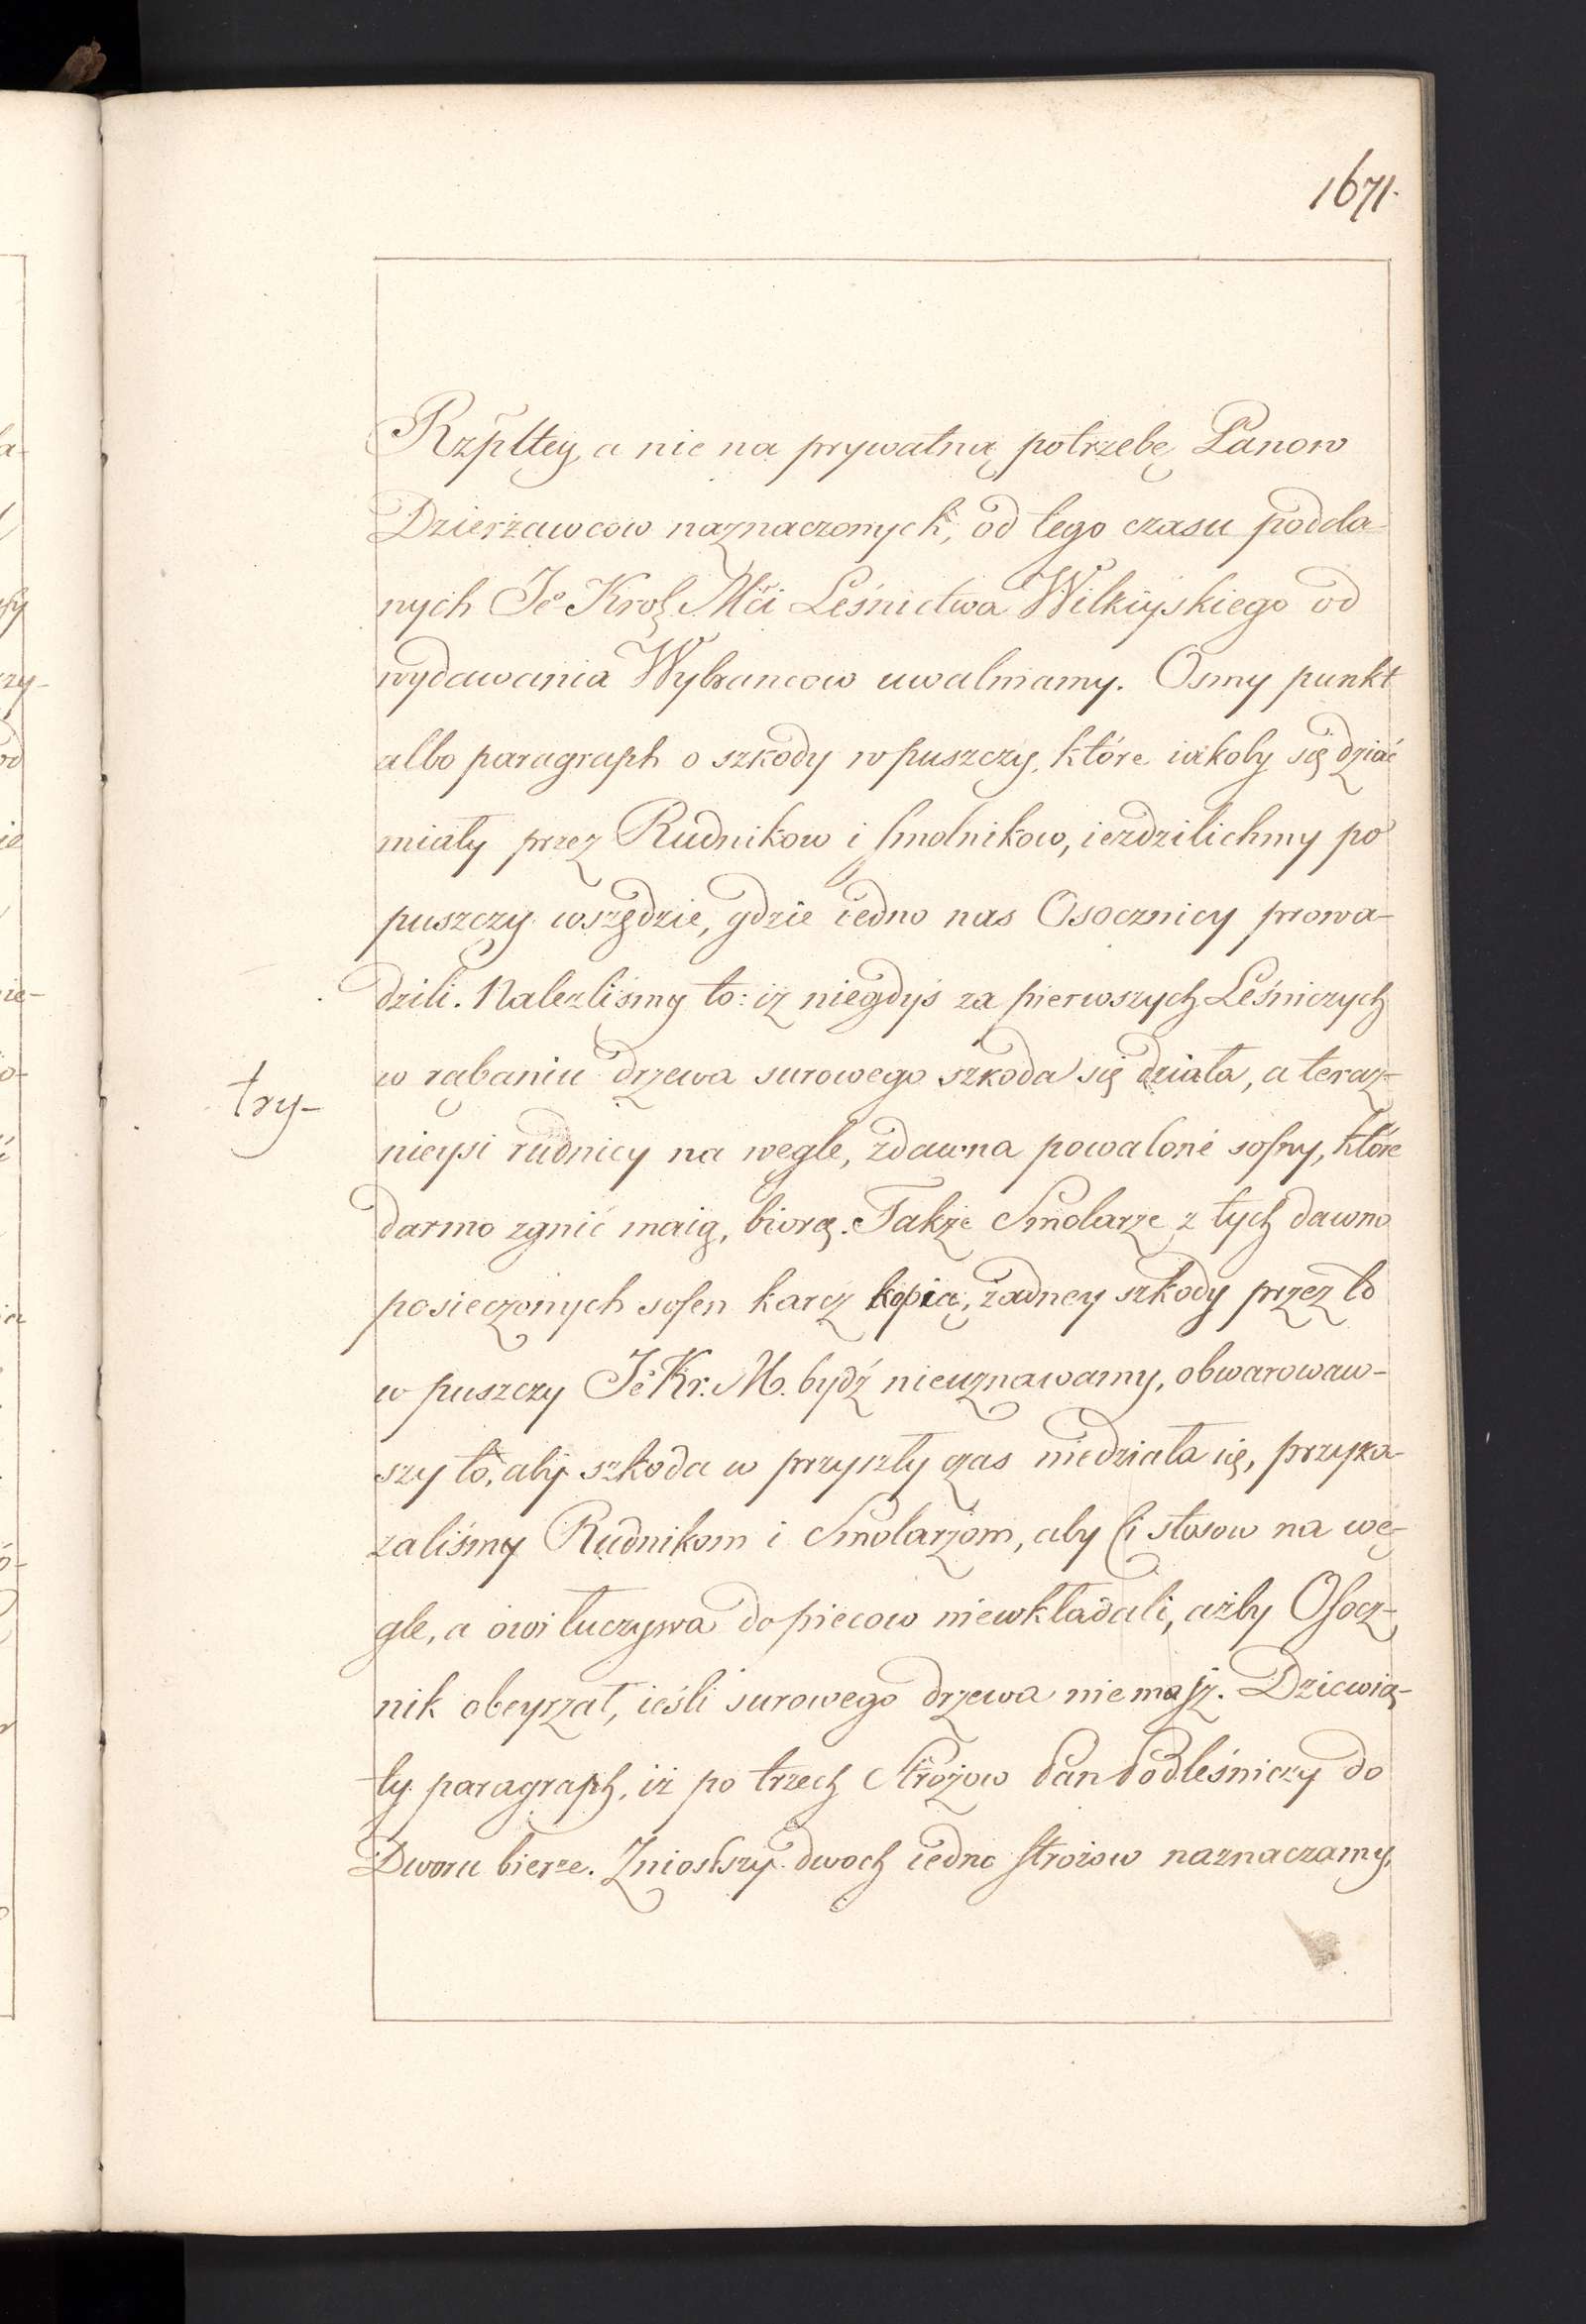 1671.
Rzpltey, a nie na prywatną potrzebę Panow
Dzierżawcow naznaczonych, od tego czasu podda-
nych Jeo Krol Mći Leśnictwa Wilkiyskiego od
wydawania Wybrancow uwalniamy. Osmy punkt
albo paragraph o szkody w puszczy, które iakoby się dziać
miały przez Rudnikow i smolnikow, ieżdzilichmy po
puszczy wszędzie, gdzie iedno nas Osocznicy prowa-
dzili. Nalezliśmy to: iż niegdyś za pierwszych Leśniczych
w rąbaniu drzewa surowego szkoda się działa, a teraz-
nieysi rudnicy na węgle, zdawna powaloné sosny, które
try-
darmo zgnić maią, biorą. Także Smolarze z tych dawno
posieczonych sosen karcz kopią, żadney szkody przez to
w puszczy Jeo Kr. M. bydź nieuznawamy, obwarowaw-
szy to, aby szkoda w przyszły czas niedziała się, przyka-
zaliśmy Rudnikom i Smolarzom, aby ci stosow na wę-
gle, a owi łuczywa do piecow niewkładali, ażby Osocz-
nik obeyrzał, ieśli surowego drzewa nie masz. Dziewią-
ty paragraph, iż po trzech Strożow Pan Podleśniczy do
Dworu bierze. Zniosłszy dwoch iedno strożow naznaczamy,